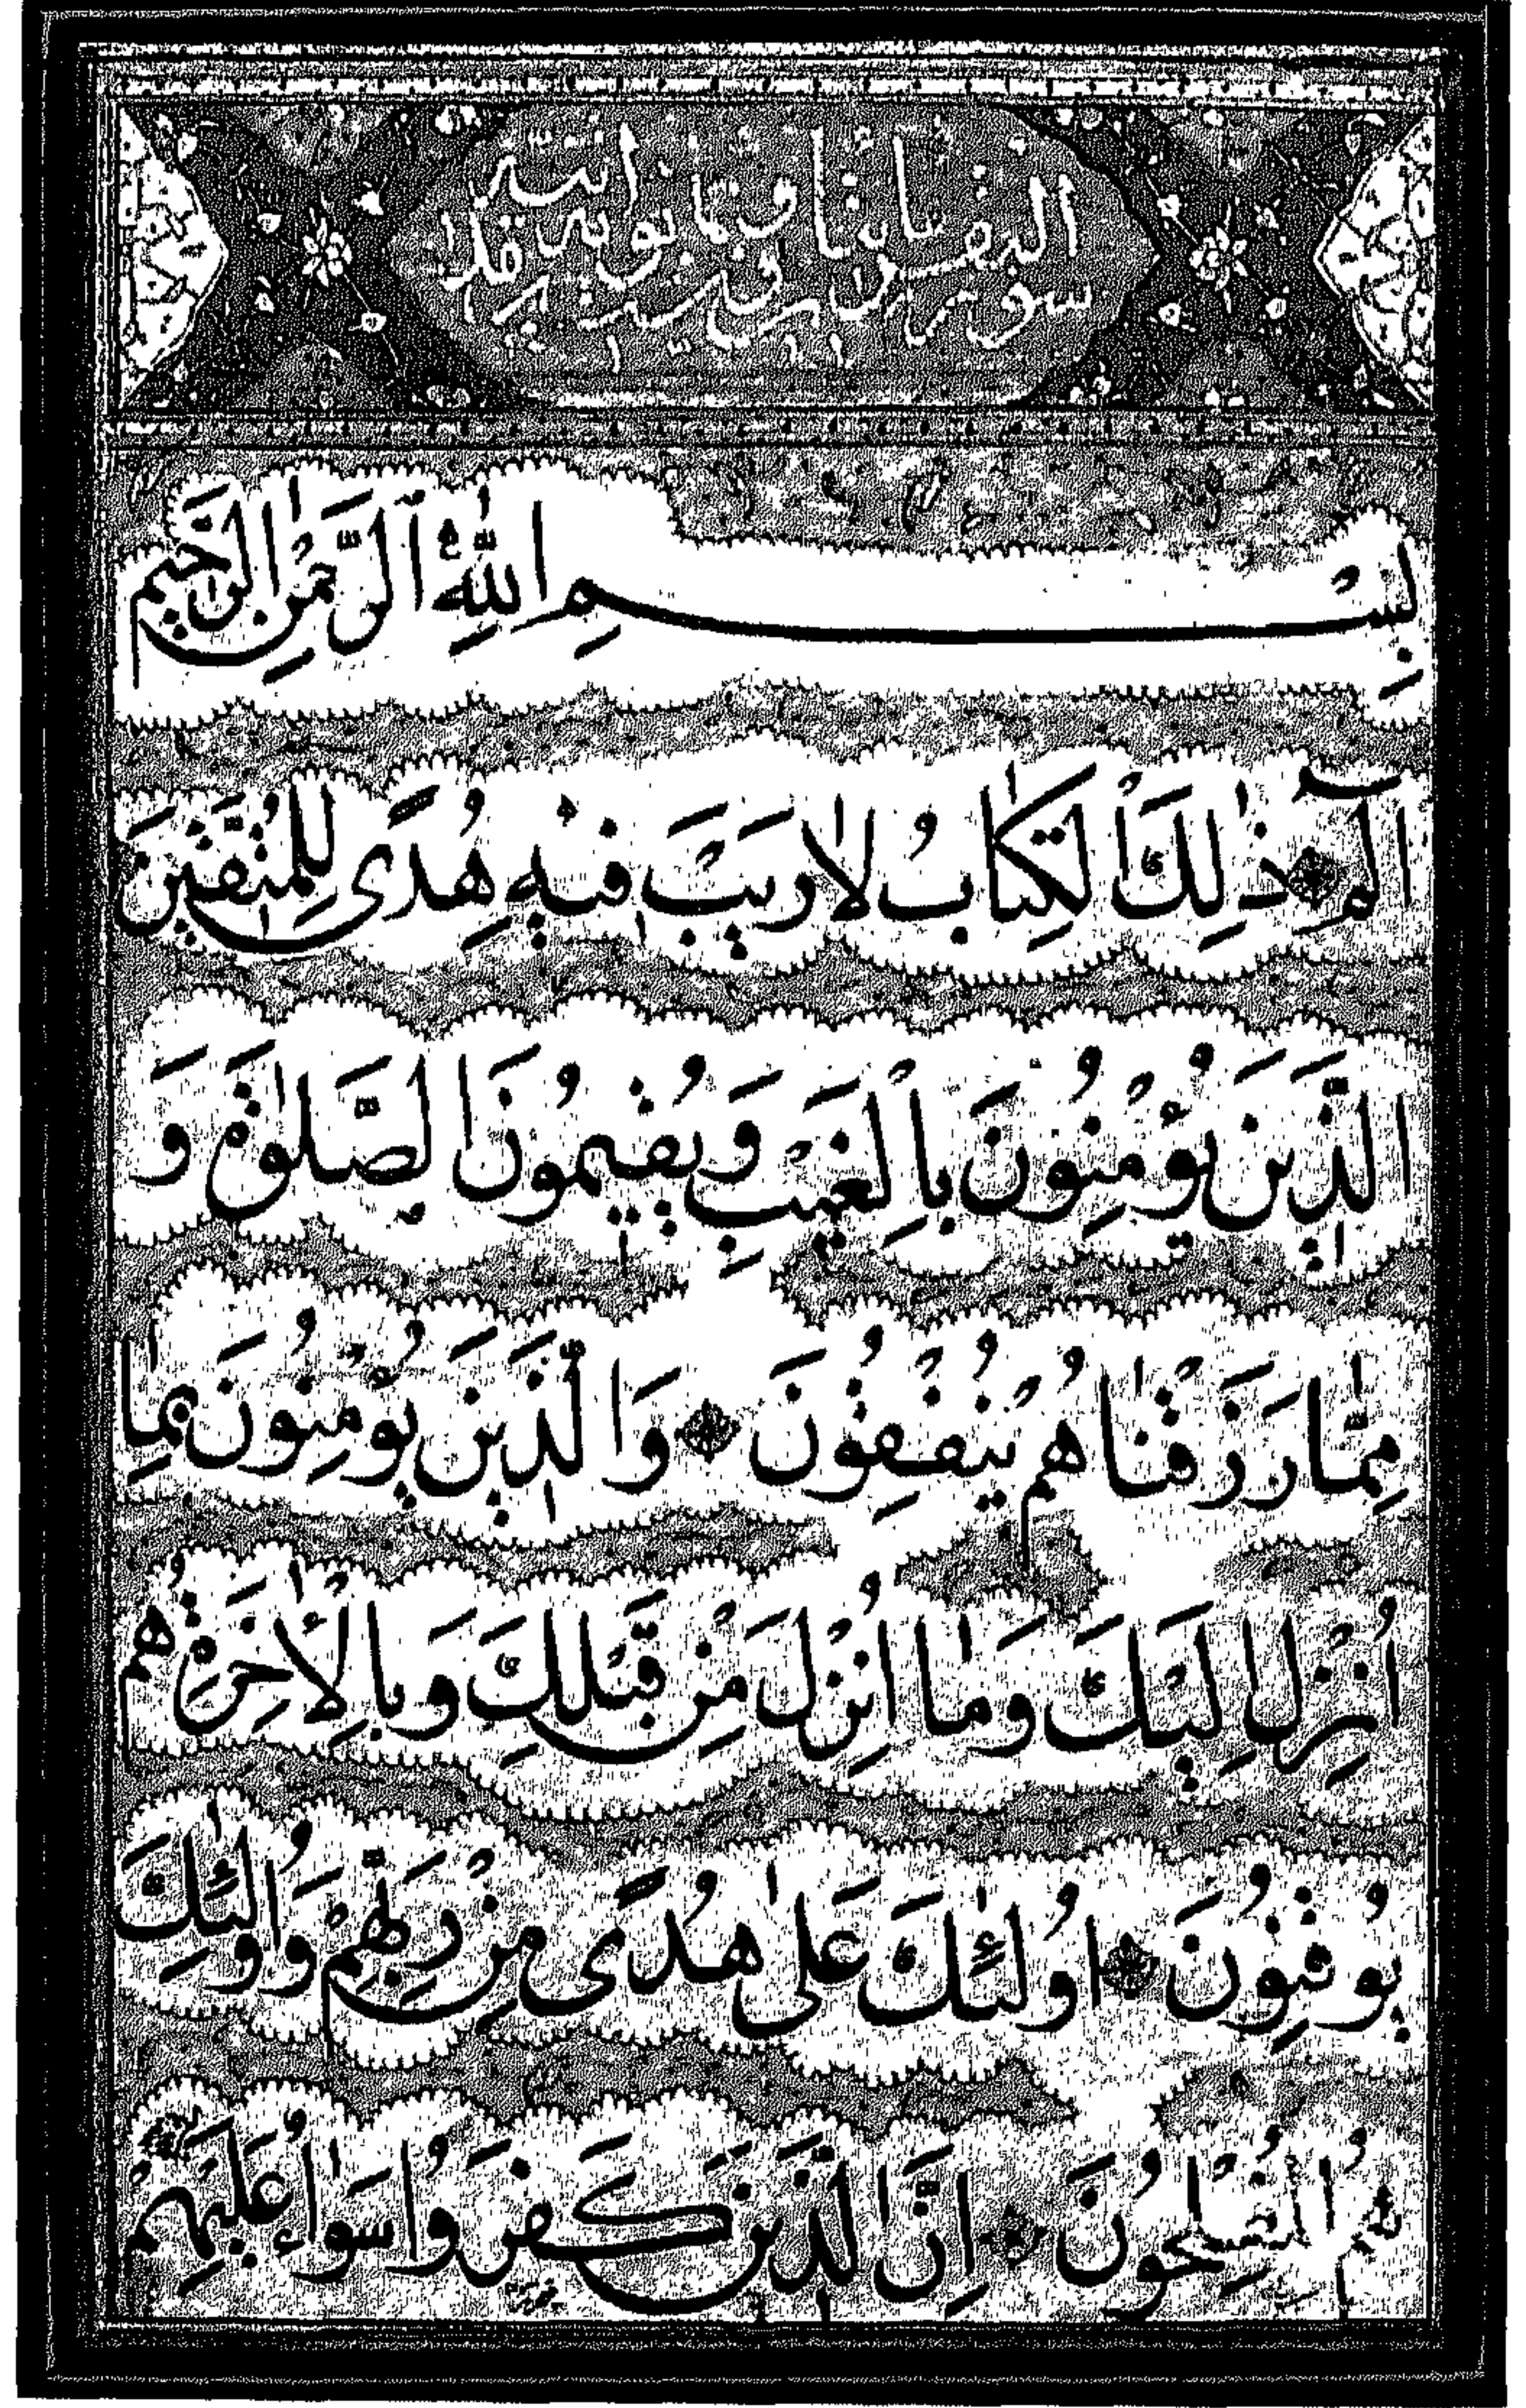 سورة البقرة مائتان وثمانون
بِسْمِ اللهِ الرَّحْمٰنِ الرَّحِيمِ
الم ذٰلِكَ الْكِتَابُ لَا رَيْبَ فِيهِ هُدًى لِلْمُتَّقِينَ
الَّذِينَ يُؤْمِنُونَ بِالْغَيْبِ وَيُقِيمُونَ الصَّلٰوةَ وَ
مِمَّا رَزَقْنَاهُمْ يُنْفِقُونَ وَالَّذِينَ يُؤْمِنُونَ بِمَا
اُنْزِلَ اِلَيْكَ وَمَا اُنْزِلَ مِنْ قَبْلِكَ وَبِالْاٰخِرَةِ هُمْ
يُوقِنُونَ اُولٰئِكَ عَلٰى هُدًى مِنْ رَبِّهِمْ وَاُولٰئِكَ
هُمُ الْمُفْلِحُونَ اِنَّ الَّذِينَ كَفَرُوا سَوَاءٌ عَلَيْهِمْ